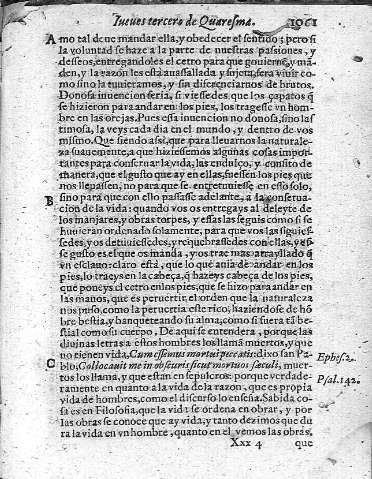 Jueues tercero de Quaresma. 1061
A mo tal deue mandar ella, y obedecer el sentido; pero si
la voluntad se haze a la parte de nuestras passiones, y
desseos, entregandoles el cetro para que gouiernẽ, y mã-
den, y la razon les està auassallada y sujeta, serà viuir co
mo sino la tuuieramos, y sin diferenciarnos de brutos.
Donosa inuencion seria, si viessedes que los çapatos q̃
se hizieron para andar en los pies, los tragesse vn hom-
bre en las orejas. Pues essa inuencion no donosa, sino las
timosa, la veys cada dia en el mundo, y dentro de vos
mismo. Que siendo assi, que para lleuarnos la naturale-
za suauemente, a que hiziessemos algunas cosas impor-
tantes para conseruar la vida, las endulço, y consito de
manera, que el gusto que ay en ellas, fuessen los pies que
nos lleuassen, no para que se entretuuiesse en esso solo,
B sino para que con ello passasse adelante, a la conserua-
cion de la vida: quando vos os entregays al deleyte de
los manjares, y obras torpes, y essas las seguis como si se
huuieran ordenado solamente, para que vos las siguies-
sedes, y os detuuiessedes, y requebrassedes con ellas, y es-
se gusto es el que os manda, y os trae mas arrayllado q̃
vn esclauo: claro està, que lo que auia de andar en los
pies, lo trays en la cabeça, q̃ hazeys cabeça de los pies,
que poneys el cetro en los pies, que se hizo para andar en
las manos, que es peruertir el orden que la naturaleza
nos puso, como la peruertia este rico, haziendose de hõ
bre bestia, y banqueteando su alma, como si fuera tã be-
stial como su cuerpo. De aqui se entendera, porque las
diuinas letras a estos hombres los llamã muertos, y que
no tienen vida, Cum essemus mortui peccatis: dixo san Pa- Ephes. 2.
C blo. Collocauit me in obscuris sicut mortuos sæculi, muer-
tos los llama, y que estan en sepulcros: porque verdade- Psal. 142.
ramente en quanto a la vida de la razon, que es propia
vida de hombres, como el discurso lo enseña. Sabida co
sa es en Filosofia, que la vida se ordena en obrar, y por
las obras se conoce que ay vida, y tanto dezimos que du
ra la vida en vn hombre, quanto en el vemos las obras,
Xxx 4 que